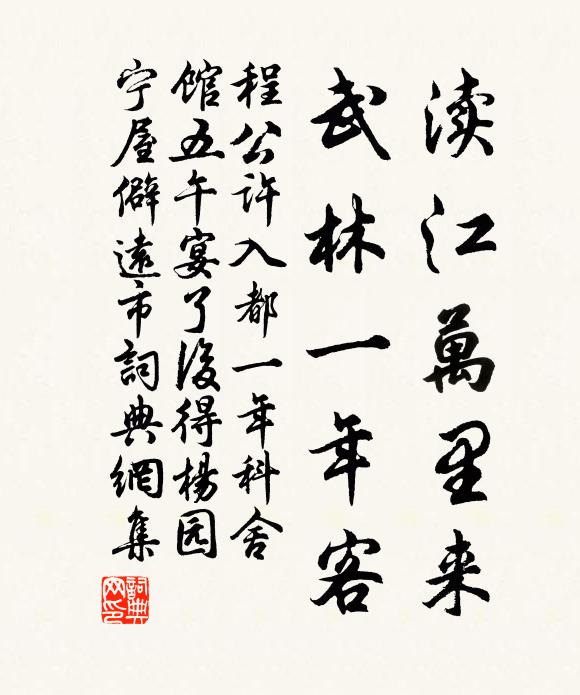 渎江萬里来
武林一年客
程公许入都一年科舍
馆五午宴了後得楊园
宁屋僻遠市詞典網集
詞典网印